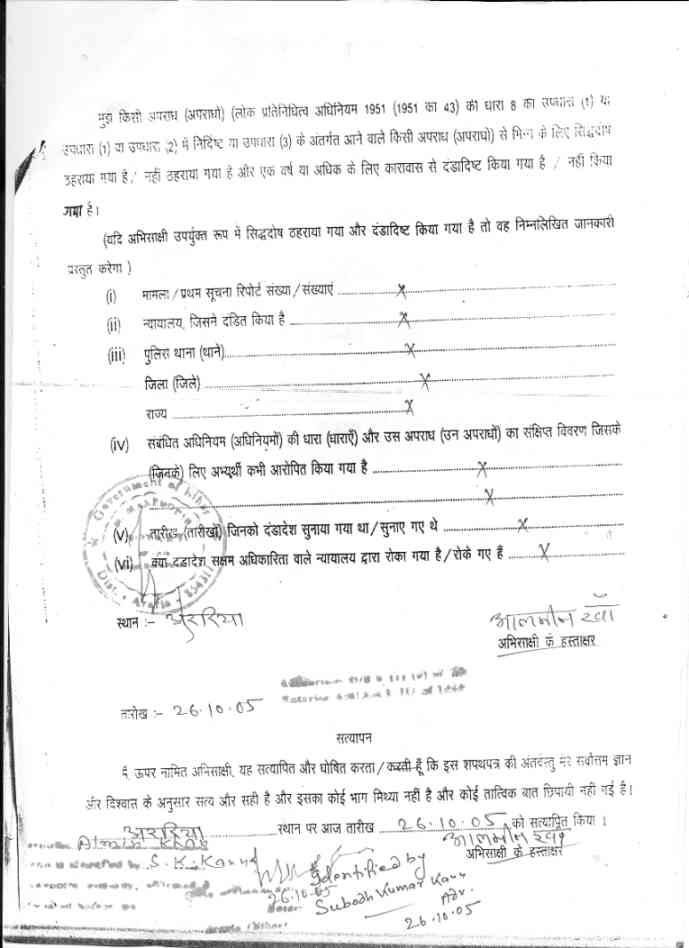 मुझे किसी अपराध (अपराधों) (लोक प्रतिनिधित्व अधिनियम 1951 (1951 का 43) की धारा 8 का उपधारा (1) या
उपधारा (1) या उपधारा (2) में निर्दिष्ट या उपधारा (3) के अंतर्गत आने वाले किसी अपराध (अपराधो) से भिन्न के लिए सिद्धदोष
ठहराया गया है / नहीं ठहराया गया है और एक वर्ष या अधिक के लिए कारावास से दंडादिष्ट किया गया है / नहीं किया
गया है।
(यदि अभिसाक्षी उपर्युक्त रूप में सिद्धदोष ठहराया गया और दंडादिष्ट किया गया है तो वह निम्नलिखित जानकारी
प्रस्तुत करेगा )
(i) मामला / प्रथम सूचना रिपोर्ट संख्या / संख्याएं ........ X ........
(ii) न्यायालय, जिसने दंडित किया है ........ X ........
(iii) पुलिस थाना (थाने)........ X ........
जिला (जिले) ........ X ........
राज्य ........ X
(iv) संबंधित अधिनियम (अधिनियमों) की धारा (धाराएँ) और उस अपराध (उन अपराधों) का संक्षिप्त विवरण जिसके
(जिनके) लिए अभ्यर्थी कभी आरोपित किया गया है ........ X ........
........ X ........
(v) तारीख (तारीखों) जिनको दंडादेश सुनाया गया था / सुनाए गए थे ........ X ........
(vi) क्या दंडादेश सक्षम अधिकारिता वाले न्यायालय द्वारा रोका गया है / रोके गए हैं ........ X ........
Government of Bihar
Dist. Araria
स्थान :- अररिया
आलमीन खाँ
अभिसाक्षी के हस्ताक्षर
तारीख :- 26.10.05
सत्यापन
मैं ऊपर नामित अभिसाक्षी, यह सत्यापित और घोषित करता / करती हूँ कि इस शपथपत्र की अंतर्वस्तु मेरे सर्वोत्तम ज्ञान
और विश्वास के अनुसार सत्य और सही है और इसका कोई भाग मिथ्या नहीं है और कोई तात्विक बात छिपायी नहीं गई है।
अररिया ........ स्थान पर आज तारीख 26.10.05 को सत्यापित किया ।
आलमीन खाँ
अभिसाक्षी के हस्ताक्षर
Almin Khan
S. K. Karna
26.10.05
Identified by
Subodh Kumar Karn
Adv.
26.10.05